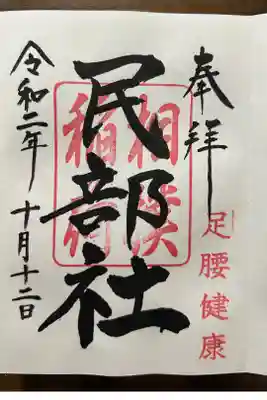 奉拝
足腰健康
相撲
稲荷
民部社
令和二年
十月十二日